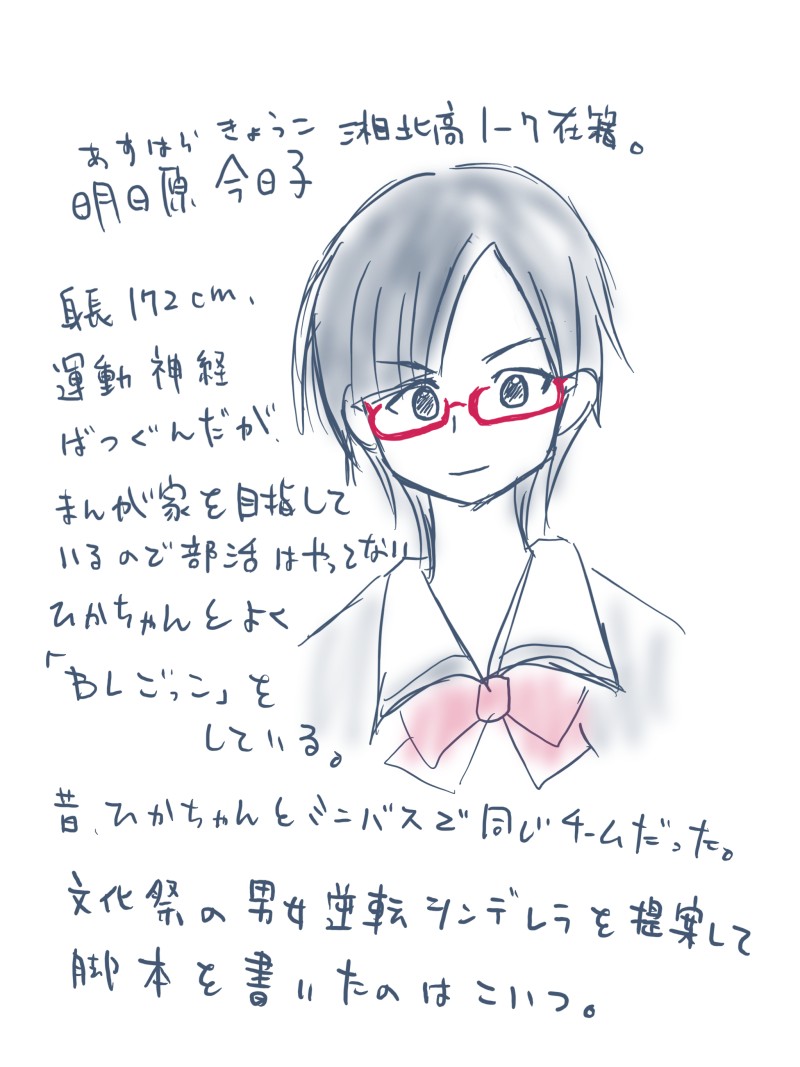 あすはら きょうこ
明日原 今日子
湘北高1-7在籍。
身長172cm、
運動神経
ばつぐんだが、
まんが家を目指して
いるので部活はやってない
ひかちゃんとよく
「BLごっこ」を
している。
昔、ひかちゃんとミニバスで同じチームだった。
文化祭の男女逆転シンデレラを提案して
脚本を書いたのはこいつ。